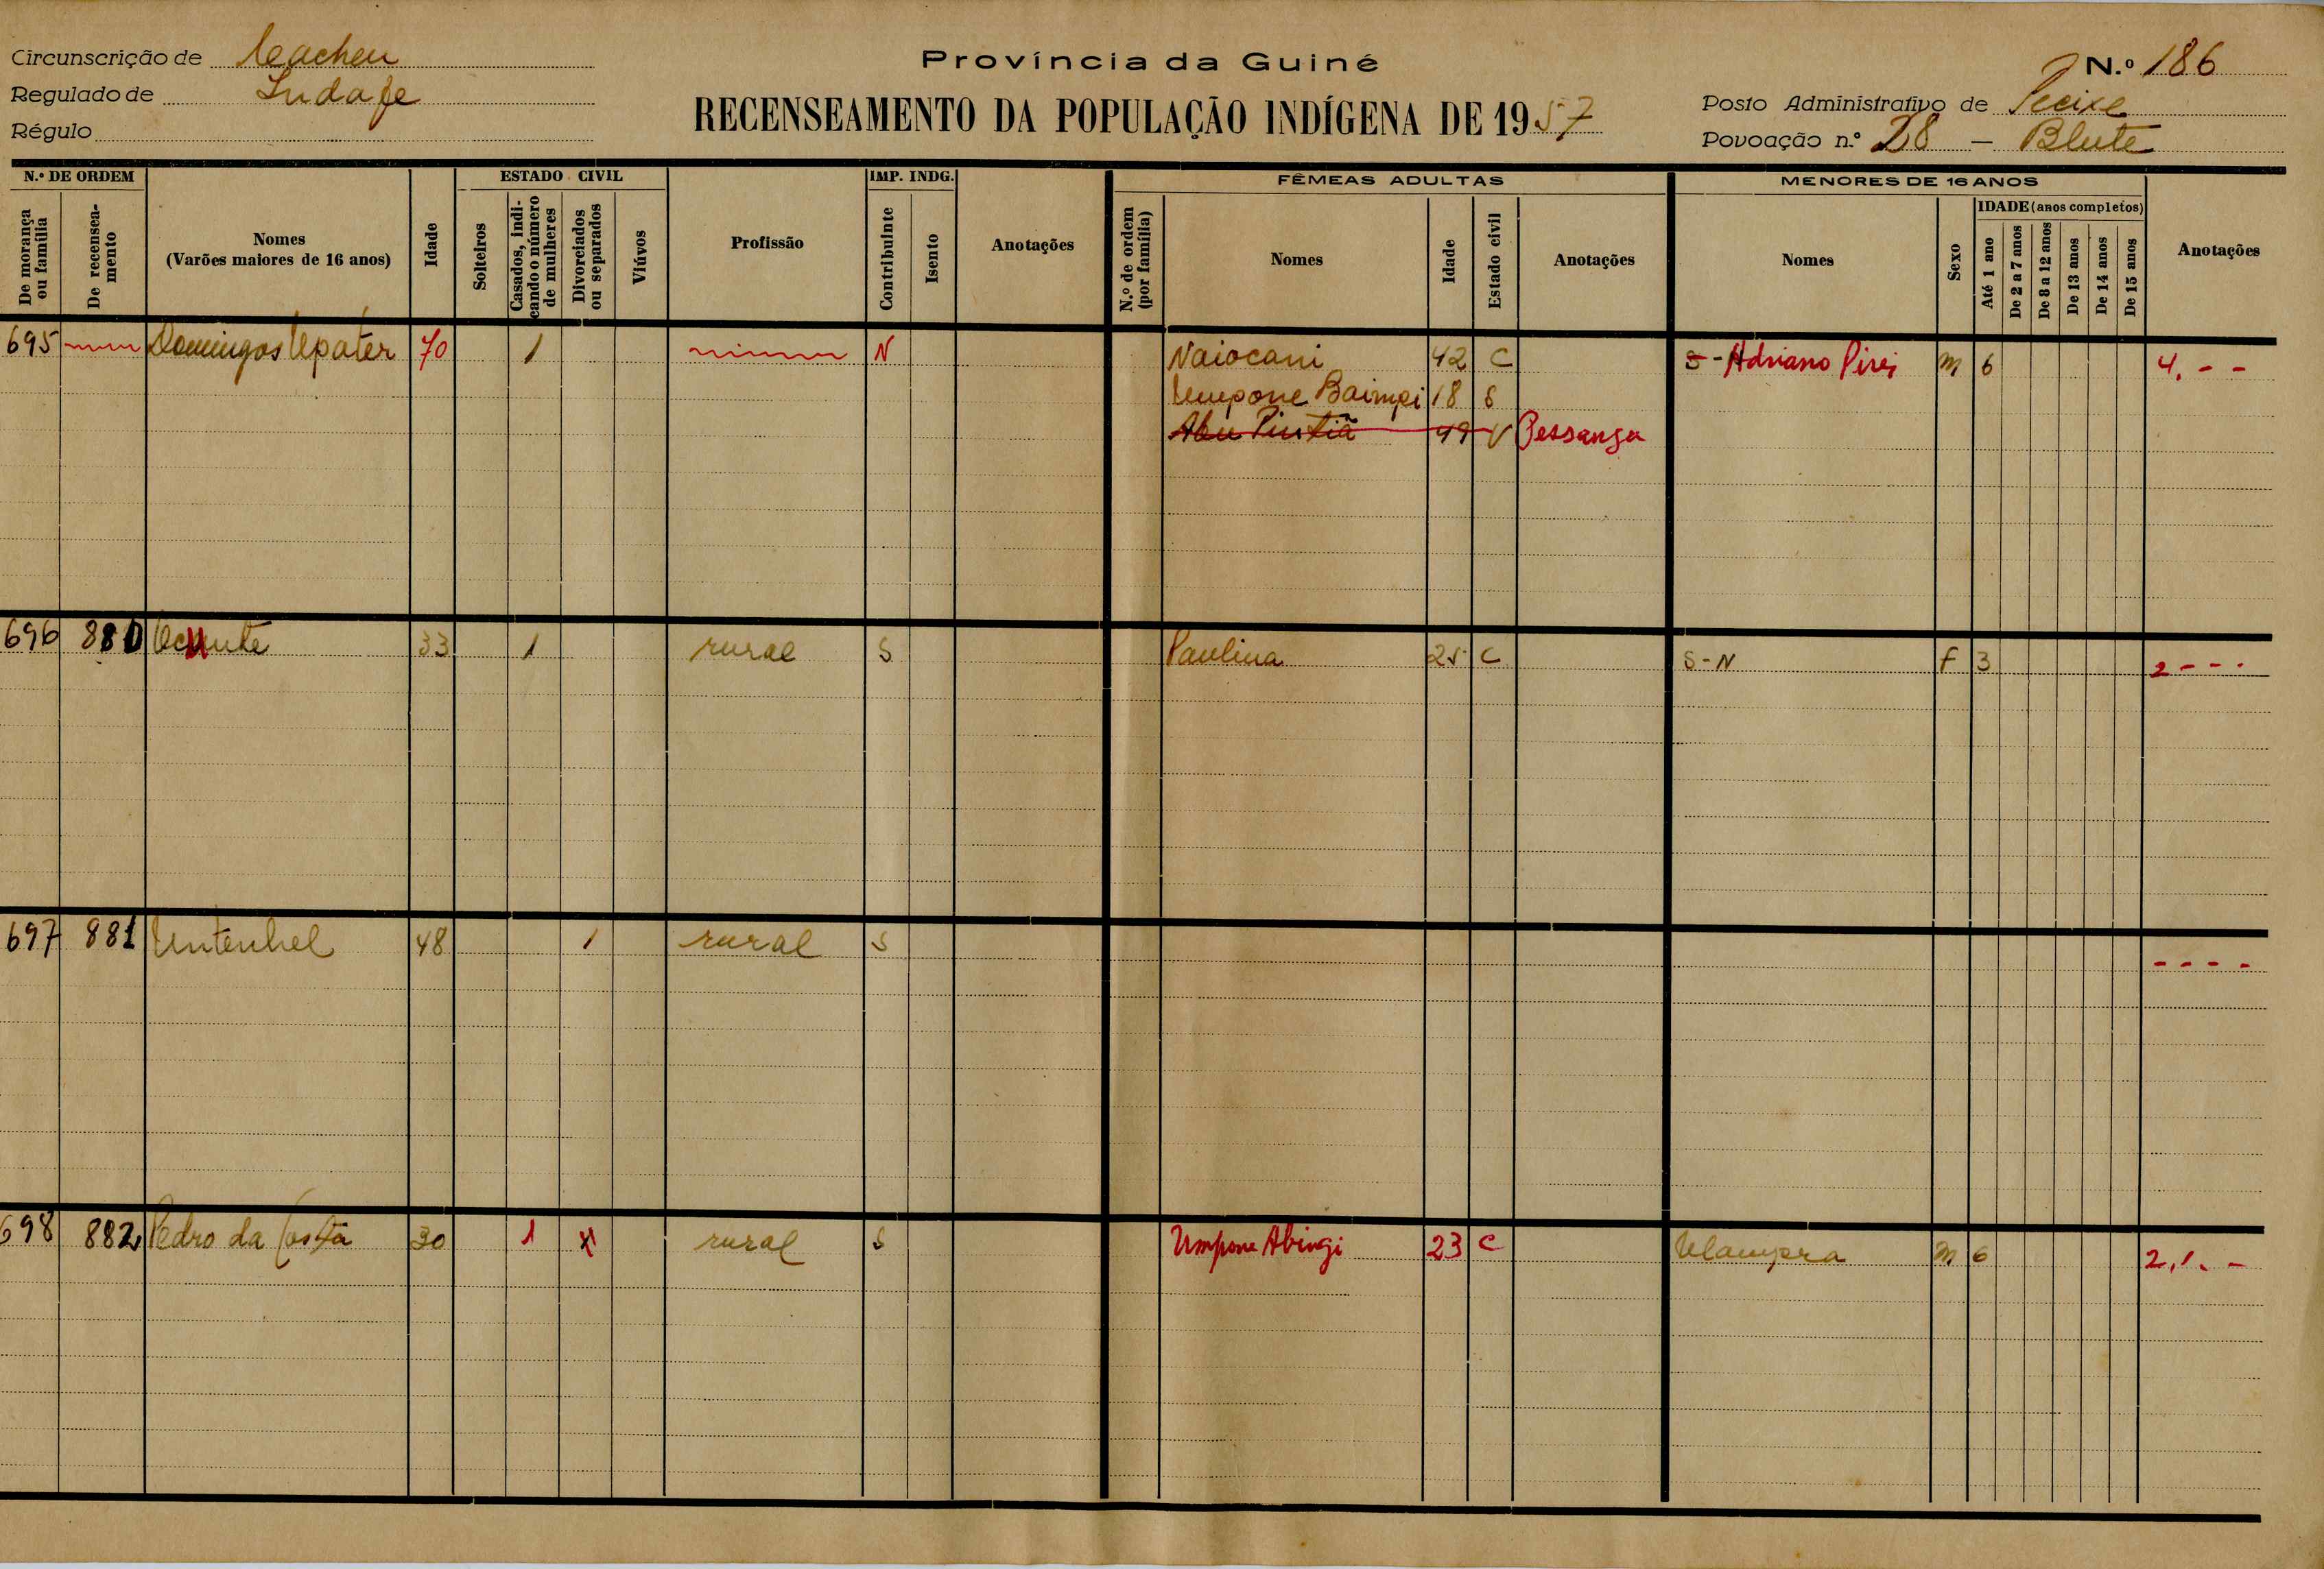 Circunscrição de Cacheu
Regulado de Indafe
Régulo
Província da Guiné
RECENSEAMENTO DA POPULAÇÃO INDÍGENA DE 1957
N.º 186
Posto Administrativo de Pecixe
Povoação n.º 28 — Blute
N.º DE ORDEM
De morança ou família
De recenseamento
Nomes
(Varões maiores de 16 anos)
Idade
ESTADO CIVIL
Solteiros
Casados, indicando o número de mulheres
Divorciados ou separados
Viúvos
Profissão
IMP. INDG.
Contribuinte
Isento
Anotações
FÊMEAS ADULTAS
N.º de ordem (por família)
Nomes
Idade
Estado civil
Anotações
MENORES DE 16 ANOS
Nomes
Sexo
IDADE (anos completos)
Até 1 ano
De 2 a 7 anos
De 8 a 12 anos
De 13 anos
De 14 anos
De 15 anos
Anotações
695 Domingos Upater 70 1 N Naiocani 42 C S - Adriano Pires M 6 4. - -
Umpone Baimpi 18 S
49 V Pessanga
696 880 33 1 rural S Paulina 25 C S - N F 3 2 - - -
697 881 Untenhel 48 1 rural S - - - -
698 882 Pedro da Costa 30 1 X rural S Umpone Abingi 23 C Ulampra M 6 2.1. -